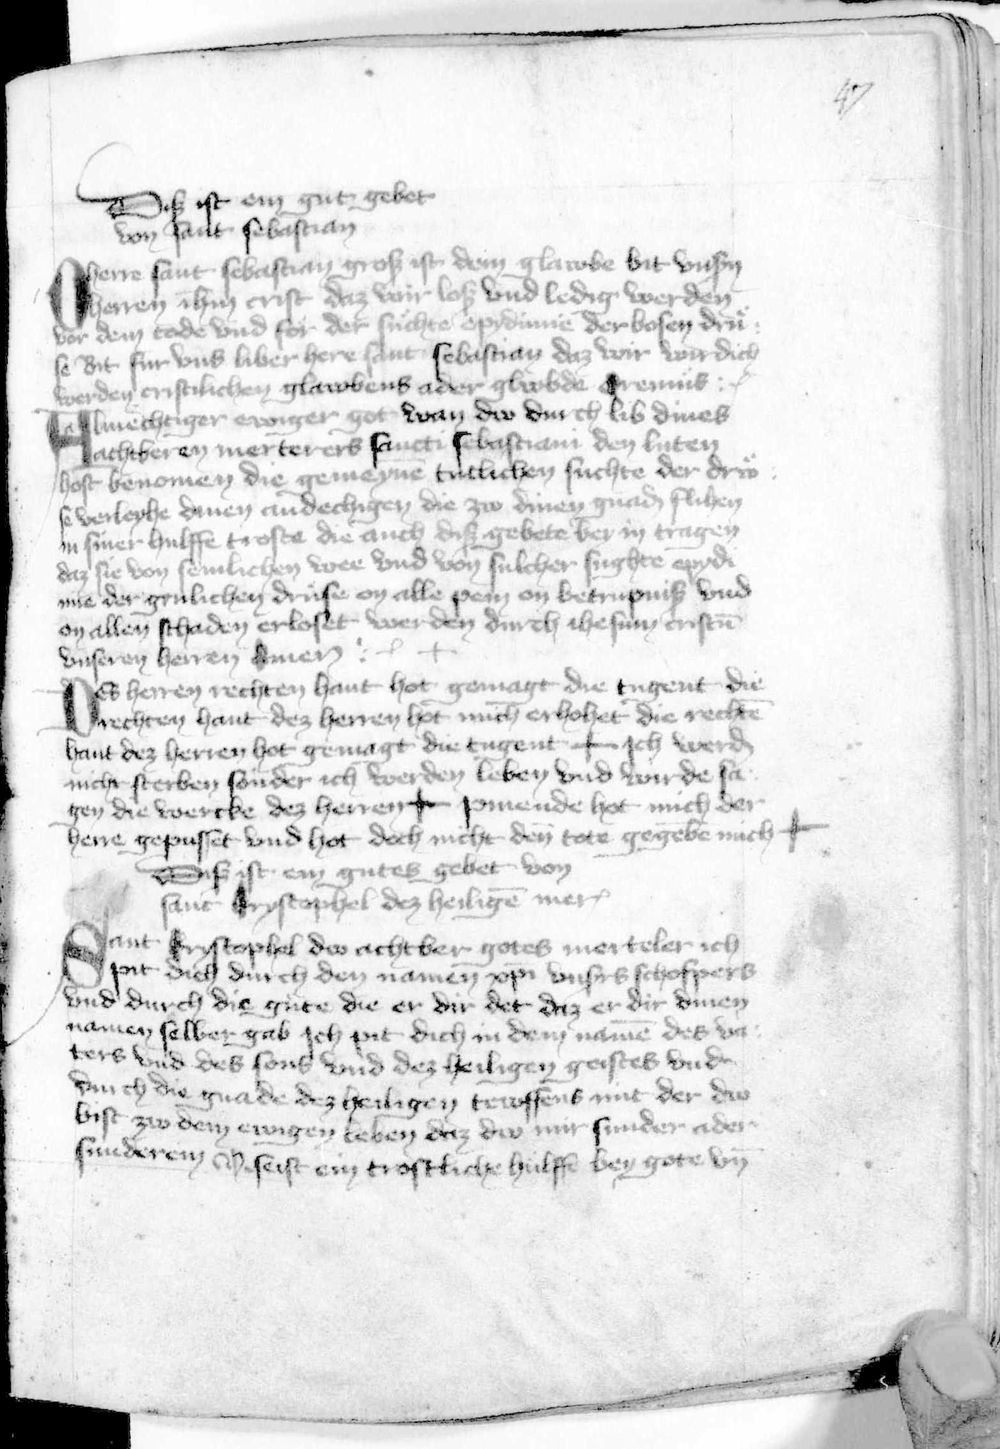 47
Disz ist ein gut gebet
von sant sebastian
O herre sant sebastian grosz ist dein glawbe bit vnszn
herren ihm crist daz wir losz vnd ledig werden
vor dem tode vnd for der suchte epydimie der bosen drů:
se Bit fur vns liber here sant sebastian daz wir wirdich
werden cristlichen glawbens ader glwbde Oremus :
Almechtiger ewiger got wan dw durch lib dines
achtberen merterers sancti sebastiani den luten
host benomen die gemeyne tutlichen suchte der drwͦ:
se verleyhe dinen andechigen die zw dinen gnadn flihen
in siner hulffe troste die auch disz gebete bey in tragen
daz sie von semlichen wee vnd von sulcher sughte epydi
mie der grulichen druse on alle pein on betrupnisz vnd
on allen schaden erloset werden durch ihesum cristū
vnseren herren Amen :
Des herren rechten hant hot gemagt die tugent die
rechten hant dez herren hot mich erhohet die rechtē
hant dez herren hot gemagt die tugent + Ich werdn
nicht sterben sonder ich werden leben vnd wirde sa
gen die wercke dez herren + pinende hot mich der
herre gepusset vnd hot doch nicht den tote gegebē mich +
Disz ist ein gutes gebet von
sant Krystophel dez heiligē mer
Sant Krystophel dw achtber gotes merteler ich
pit dich durch den namen xpi vnsrs schopfers
vnd durch die gute die er dir det daz er dir dinen
namen selber gab Ich pit dich in dem namē des va:
ters vnd des sons vnd dez heiligen geistes vnd
durch die gnade dez heiligen tewffens mit der dw
bist zw dem ewigen leben daz dw mir sunder ader
sunderein seist ein trostliche hulffe bey gote vn̄